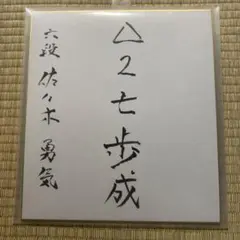 △2七歩成
六段 佐々木 勇気